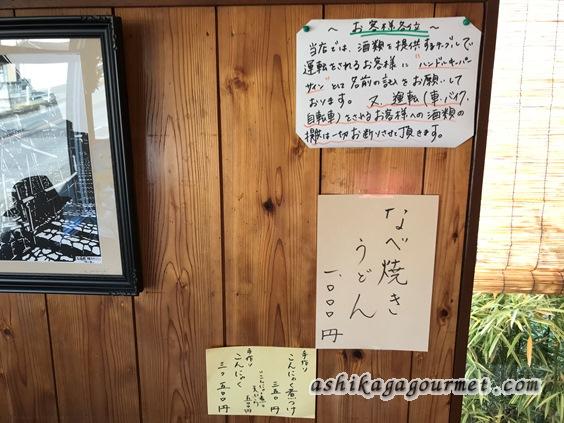 ～お客様各位～
当店では、酒類を提供するテーブルで
運転をされるお客様に"ハンドルキーパー
サイン"として名前の記入をお願いして
おります。又、運転（車・バイク、
自転車）をされるお客様への酒類の
提供は一切お断りさせて頂きます。
なべ焼き
うどん
一、〇〇〇円
手作り
こんにゃく煮つけ
三五〇円
手作り
こんにゃく
ashikagagourmet.com